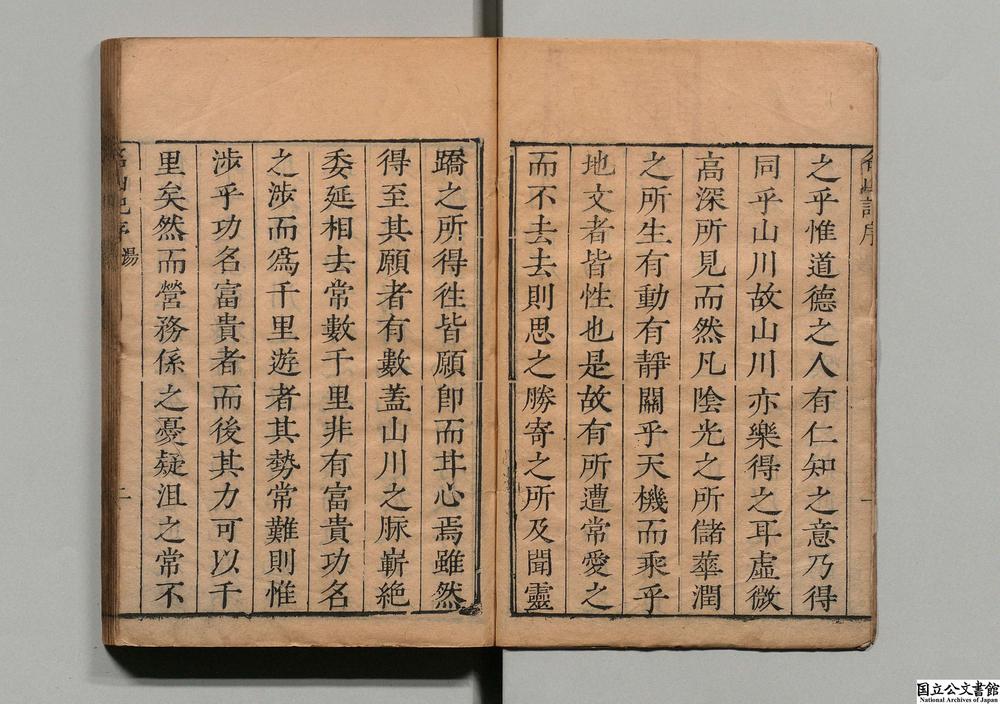 之乎惟道德之人有仁知之意乃得
同乎山川故山川亦樂得之耳虛微
高深所見而然凡陰光之所儲華潤
之所生有動有靜關乎天機而乘乎
地文者皆性也是故有所遭常愛之
而不去去則思之勝寄之所及聞靈
蹻之所得徃皆願卽而廾心焉雖然
得至其願者有數蓋山川之脈嶄絶
委延相去常數千里非有富貴功名
之涉而爲千里遊者其勢常難則惟
涉乎功名富貴者而後其力可以千
里矣然而營務係之憂疑沮之常不
序
湯
二
国立公文書館
National Archives of Japan